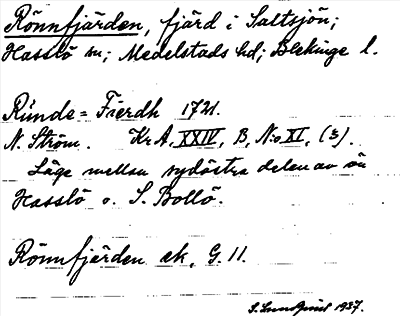 Rönnfjärden, fjärd i Saltsjön;
Hasslö sn; Medelstads hd; Blekinge l.
Runde = Fierdh 1721.
N. Ström. Kr A. XXIV, B, No XI, (3).
Läge mellan sydöstra delen av ön
Hasslö o. S. Bollö.
Rönnfjärden ek, G. 11.
S. Lundquist 1937.